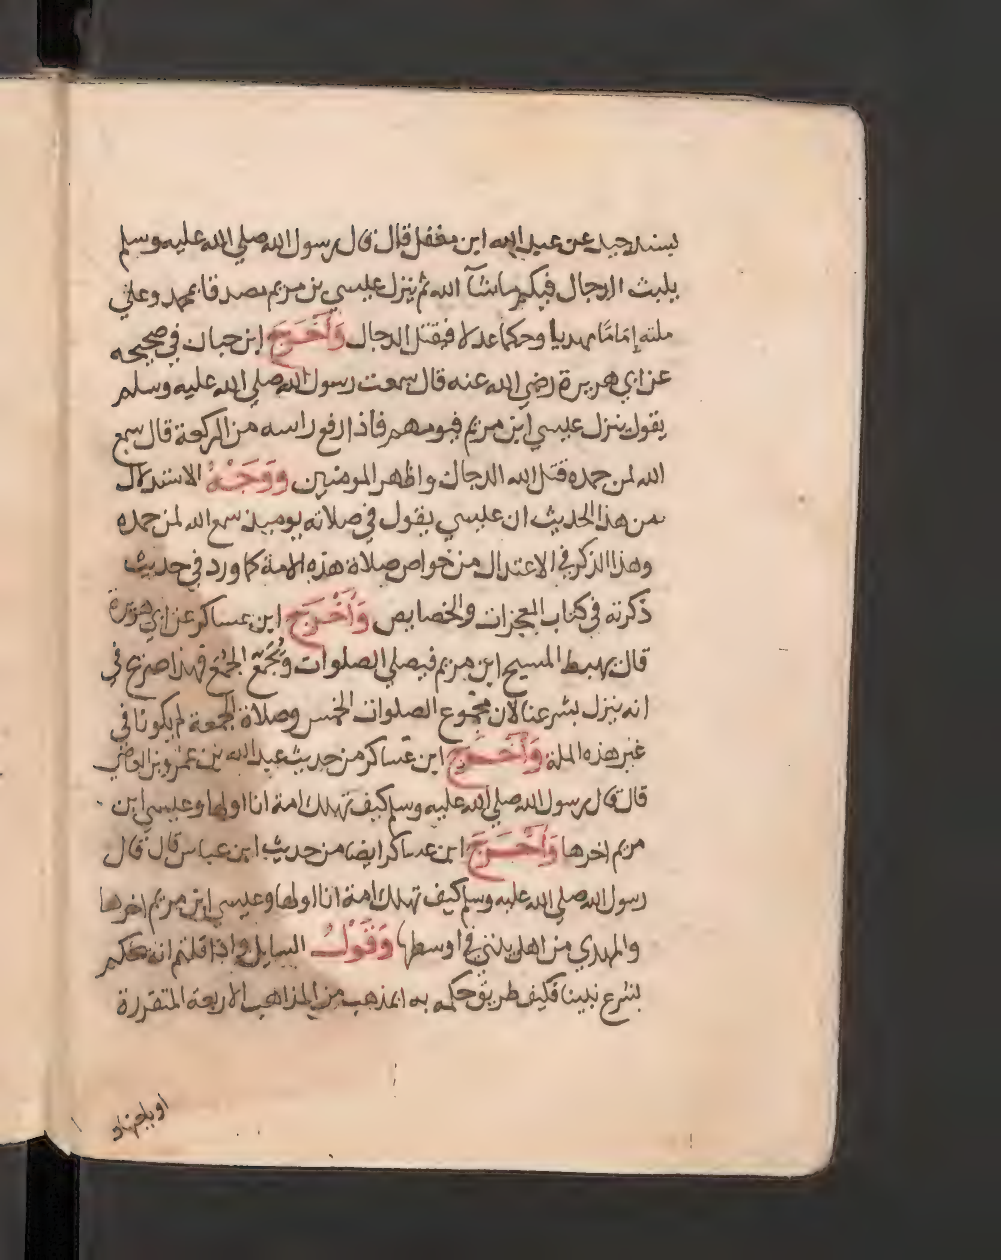 بسند جيد عن عبد الله ابن مغفل قال قال رسول الله صلي الله عليه وسلم
يلبث الدجال فيكم ماشآ الله ثم ينزل عيسي بن مريم مصدقا بمحمد وعلي
ملته إمامًا مهديا وحكما عدلا فيقتل الدجال وَأَخْرَجَ ابن حبان في صحيحه
عن ابي هريرة رضي الله عنه قال سمعت رسول الله صلي الله عليه وسلم
يقول ينزل عيسي ابن مريم فيومهم فاذا رفع راسه من الركعة قال سمع
الله لمن حمده قتل الله الدجال واظهر المومنين وَوَجْهُ الاستدلال
من هذا الحديث ان عيسي يقول في صلاته يوميذ سمع الله لمن حمده
وهذا الذكر في الاعتدال من خواص صلاة هذه الامة كما ورد في حديث
ذكرته في كتاب المعجزات والخصايص وَأَخْرَج ابن عساكر عن ابي هريرة
قال يهبط المسيح ابن مريم فيصلي الصلوات ويُجَمِّع الجُمَع فهذا صريح في
انه ينزل بشرعنا لان مجموع الصلوات الخمس وصلاة الجمعة لم يكونا في
غير هذه الملة وَأَخْرَج ابن عساكر من حديث عبد الله بن عمرو بن العاص
قال قال رسول الله صلي الله عليه وسلم كيف تهلك امة انا اولها وعيسي ابن
مريم اخرها وَأَخْرَجَ ابن عساكر ايضا من حديث ابن عباس قال قال
رسول الله صلي الله عليه وسلم كيف تهلك امة انا اولها وعيسي ابن مريم اخرها
والمهدي من اهل بيتي في اوسطها وَقَوْلُ السايل واذا قلتم انه يحكم
بشرع نبينا فكيف طريق حكمه به ابمذهب من المذاهب الاربعة المتقررة
او باجتهاد